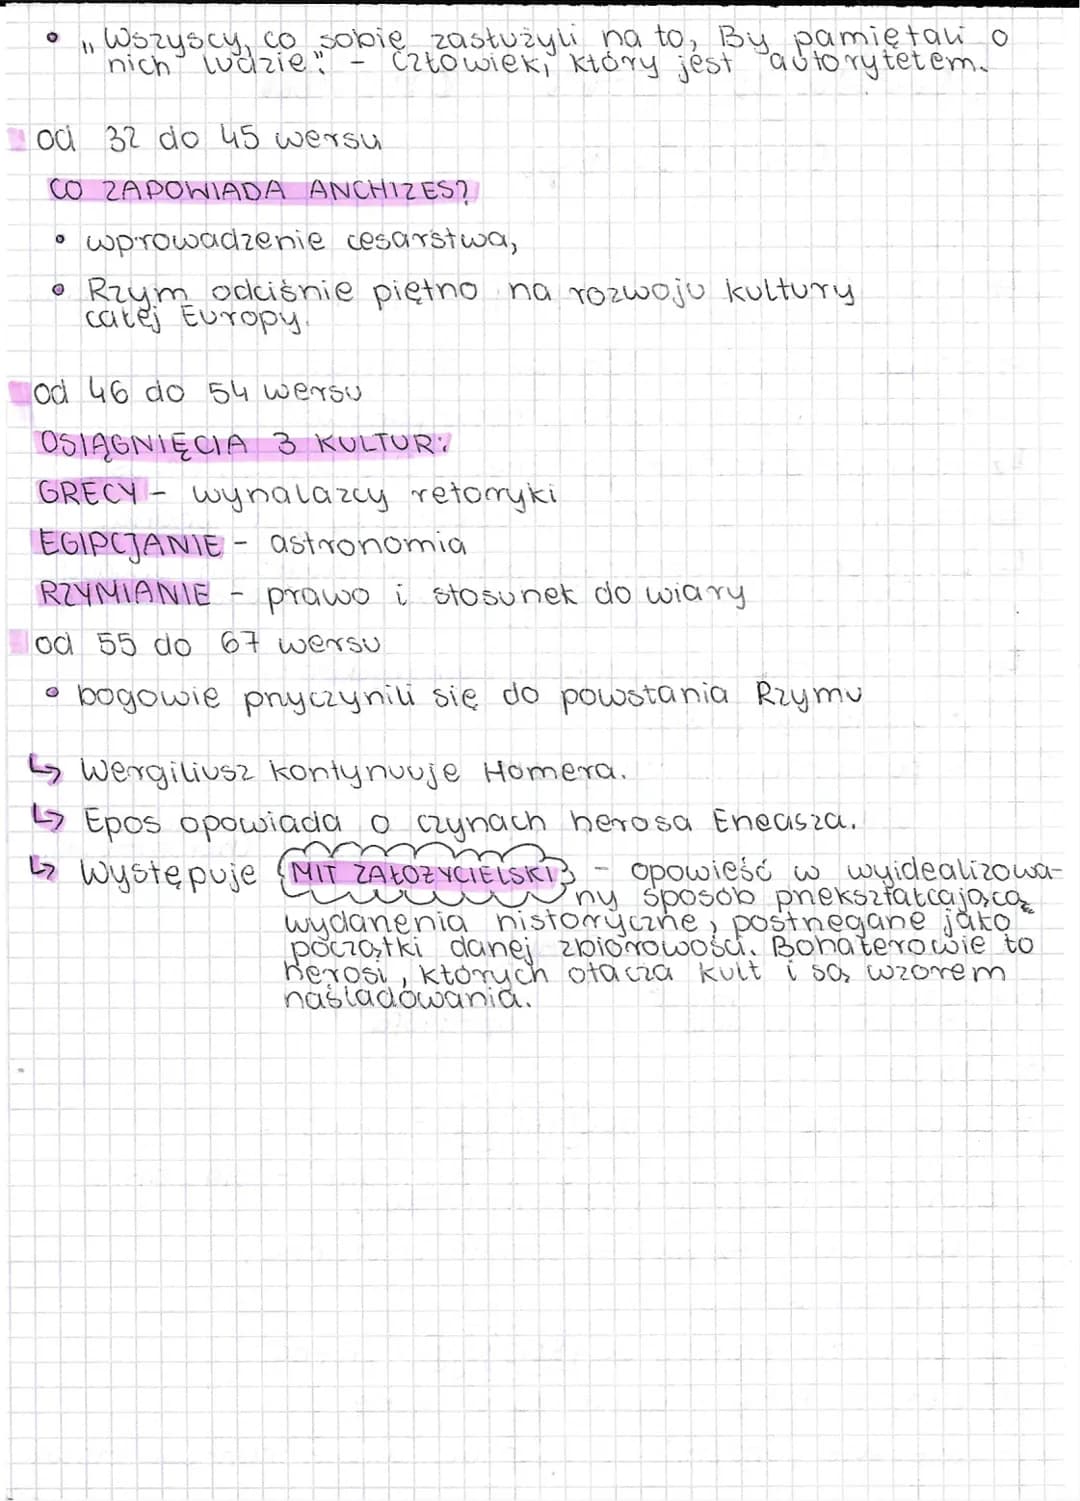 • „Wszyscy, co sobie zasłużyli na to, By pamiętali o
nich ludzie." - człowiek, który jest autorytetem.
od 32 do 45 wersu
CO ZAPOWIADA ANCHIZES?
• wprowadzenie cesarstwa,
• Rzym odciśnie piętno na rozwoju kultury
całej Europy.
od 46 do 54 wersu
OSIĄGNIĘCIA 3 KULTUR:
GRECY - wynalazcy retoryki
EGIPCJANIE - astronomia
RZYMIANIE - prawo i stosunek do wiary
od 55 do 67 wersu
• bogowie przyczynili się do powstania Rzymu
↳ Wergiliusz kontynuuje Homera.
↳ Epos opowiada o czynach herosa Eneasza.
↳ Występuje MIT ZAŁOŻYCIELSKI - opowieść w wyidealizowa-
ny sposób przekształcająca
wydarzenia historyczne, postrzegane jako
początki danej zbiorowości. Bohaterowie to
herosi, których otacza kult i są wzorem
naśladowania.